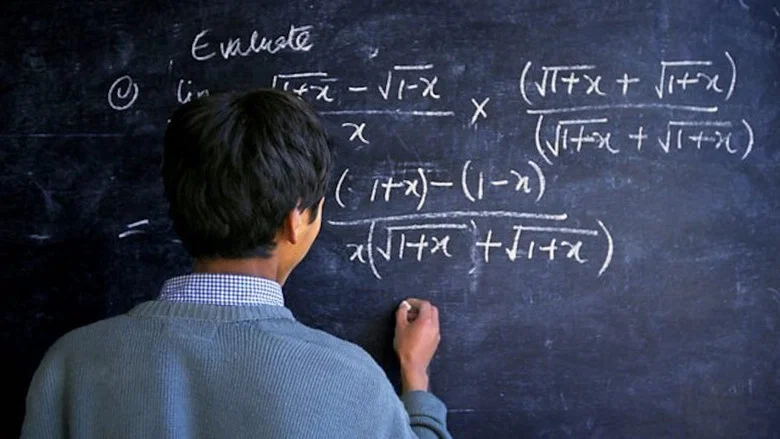 Evaluate
① lim (√1+x − √1-x)/x × (√1+x + √1+x)/(√1+x + √1+x)
= ((1+x)−(1-x))/(x(√1+x + √1+x))